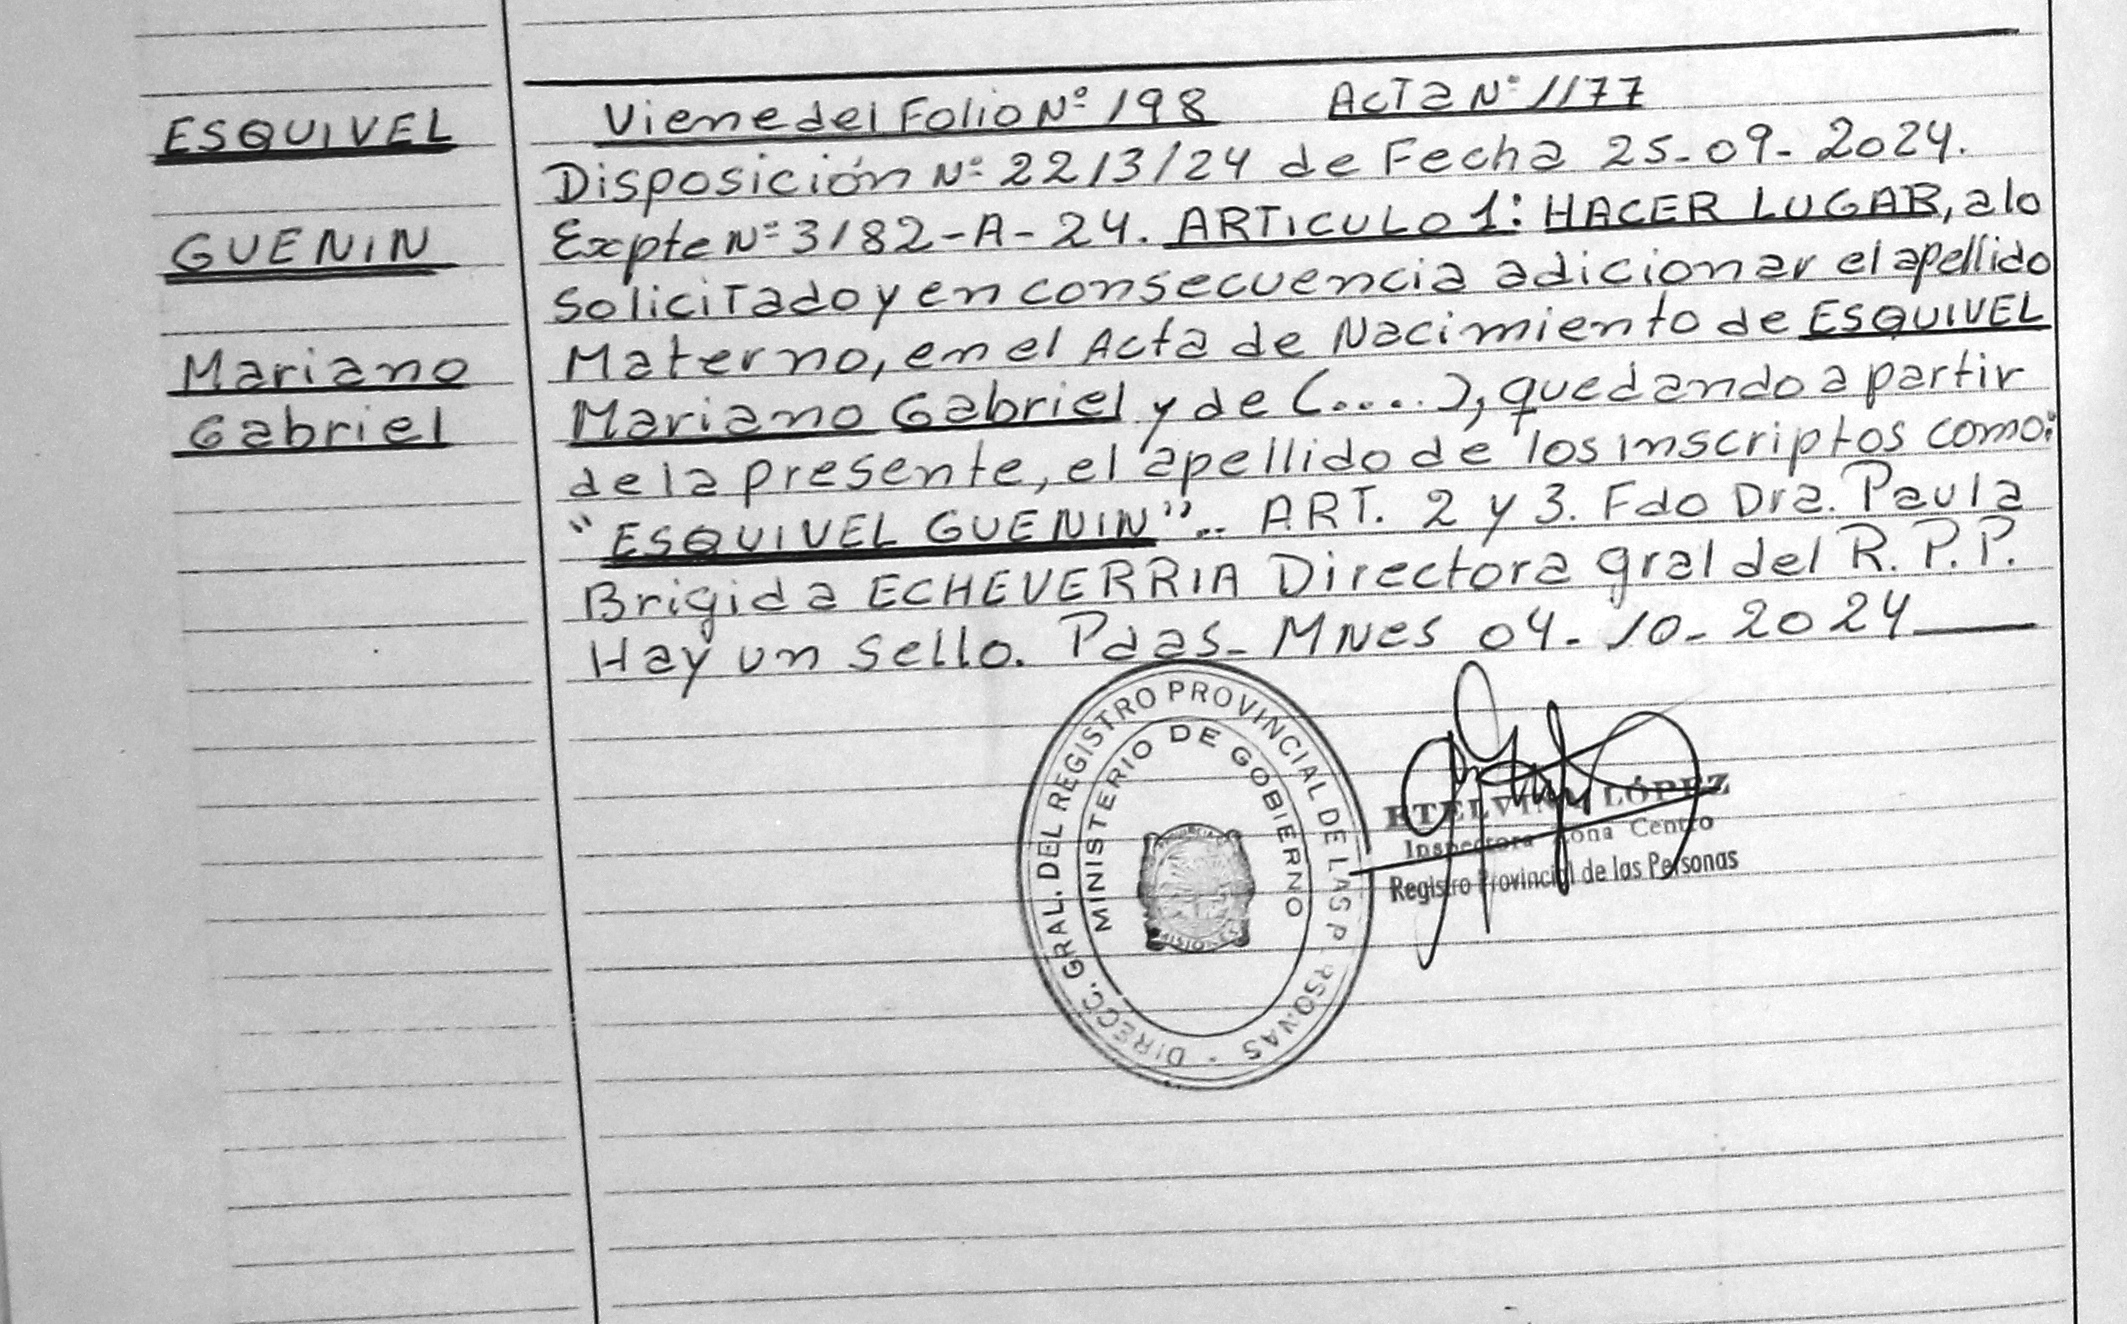 ESQUIVEL
GUENIN
Mariano
Gabriel
Viene del Folio Nº 198 Acta Nº 1177
Disposición Nº 2213/24 de Fecha 25-09-2024.
Expte Nº 3182-A-24. ARTICULO 1: HACER LUGAR, a lo
solicitado y en consecuencia adicionar el apellido
Materno, en el Acta de Nacimiento de ESQUIVEL
Mariano Gabriel y de (....), quedando a partir
de la presente, el apellido de los inscriptos como:
"ESQUIVEL GUENIN".. ART. 2 y 3. Fdo Dra. Paula
Brigida ECHEVERRIA Directora gral del R.P.P.
Hay un sello. Pdas- MNes 04-10-2024
DIRECC. GRAL. DEL REGISTRO PROVINCIAL DE LAS PERSONAS
MINISTERIO DE GOBIERNO
MISIONES
ETELVINA LÓPEZ
Inspectora Zona Centro
Registro Provincial de las Personas